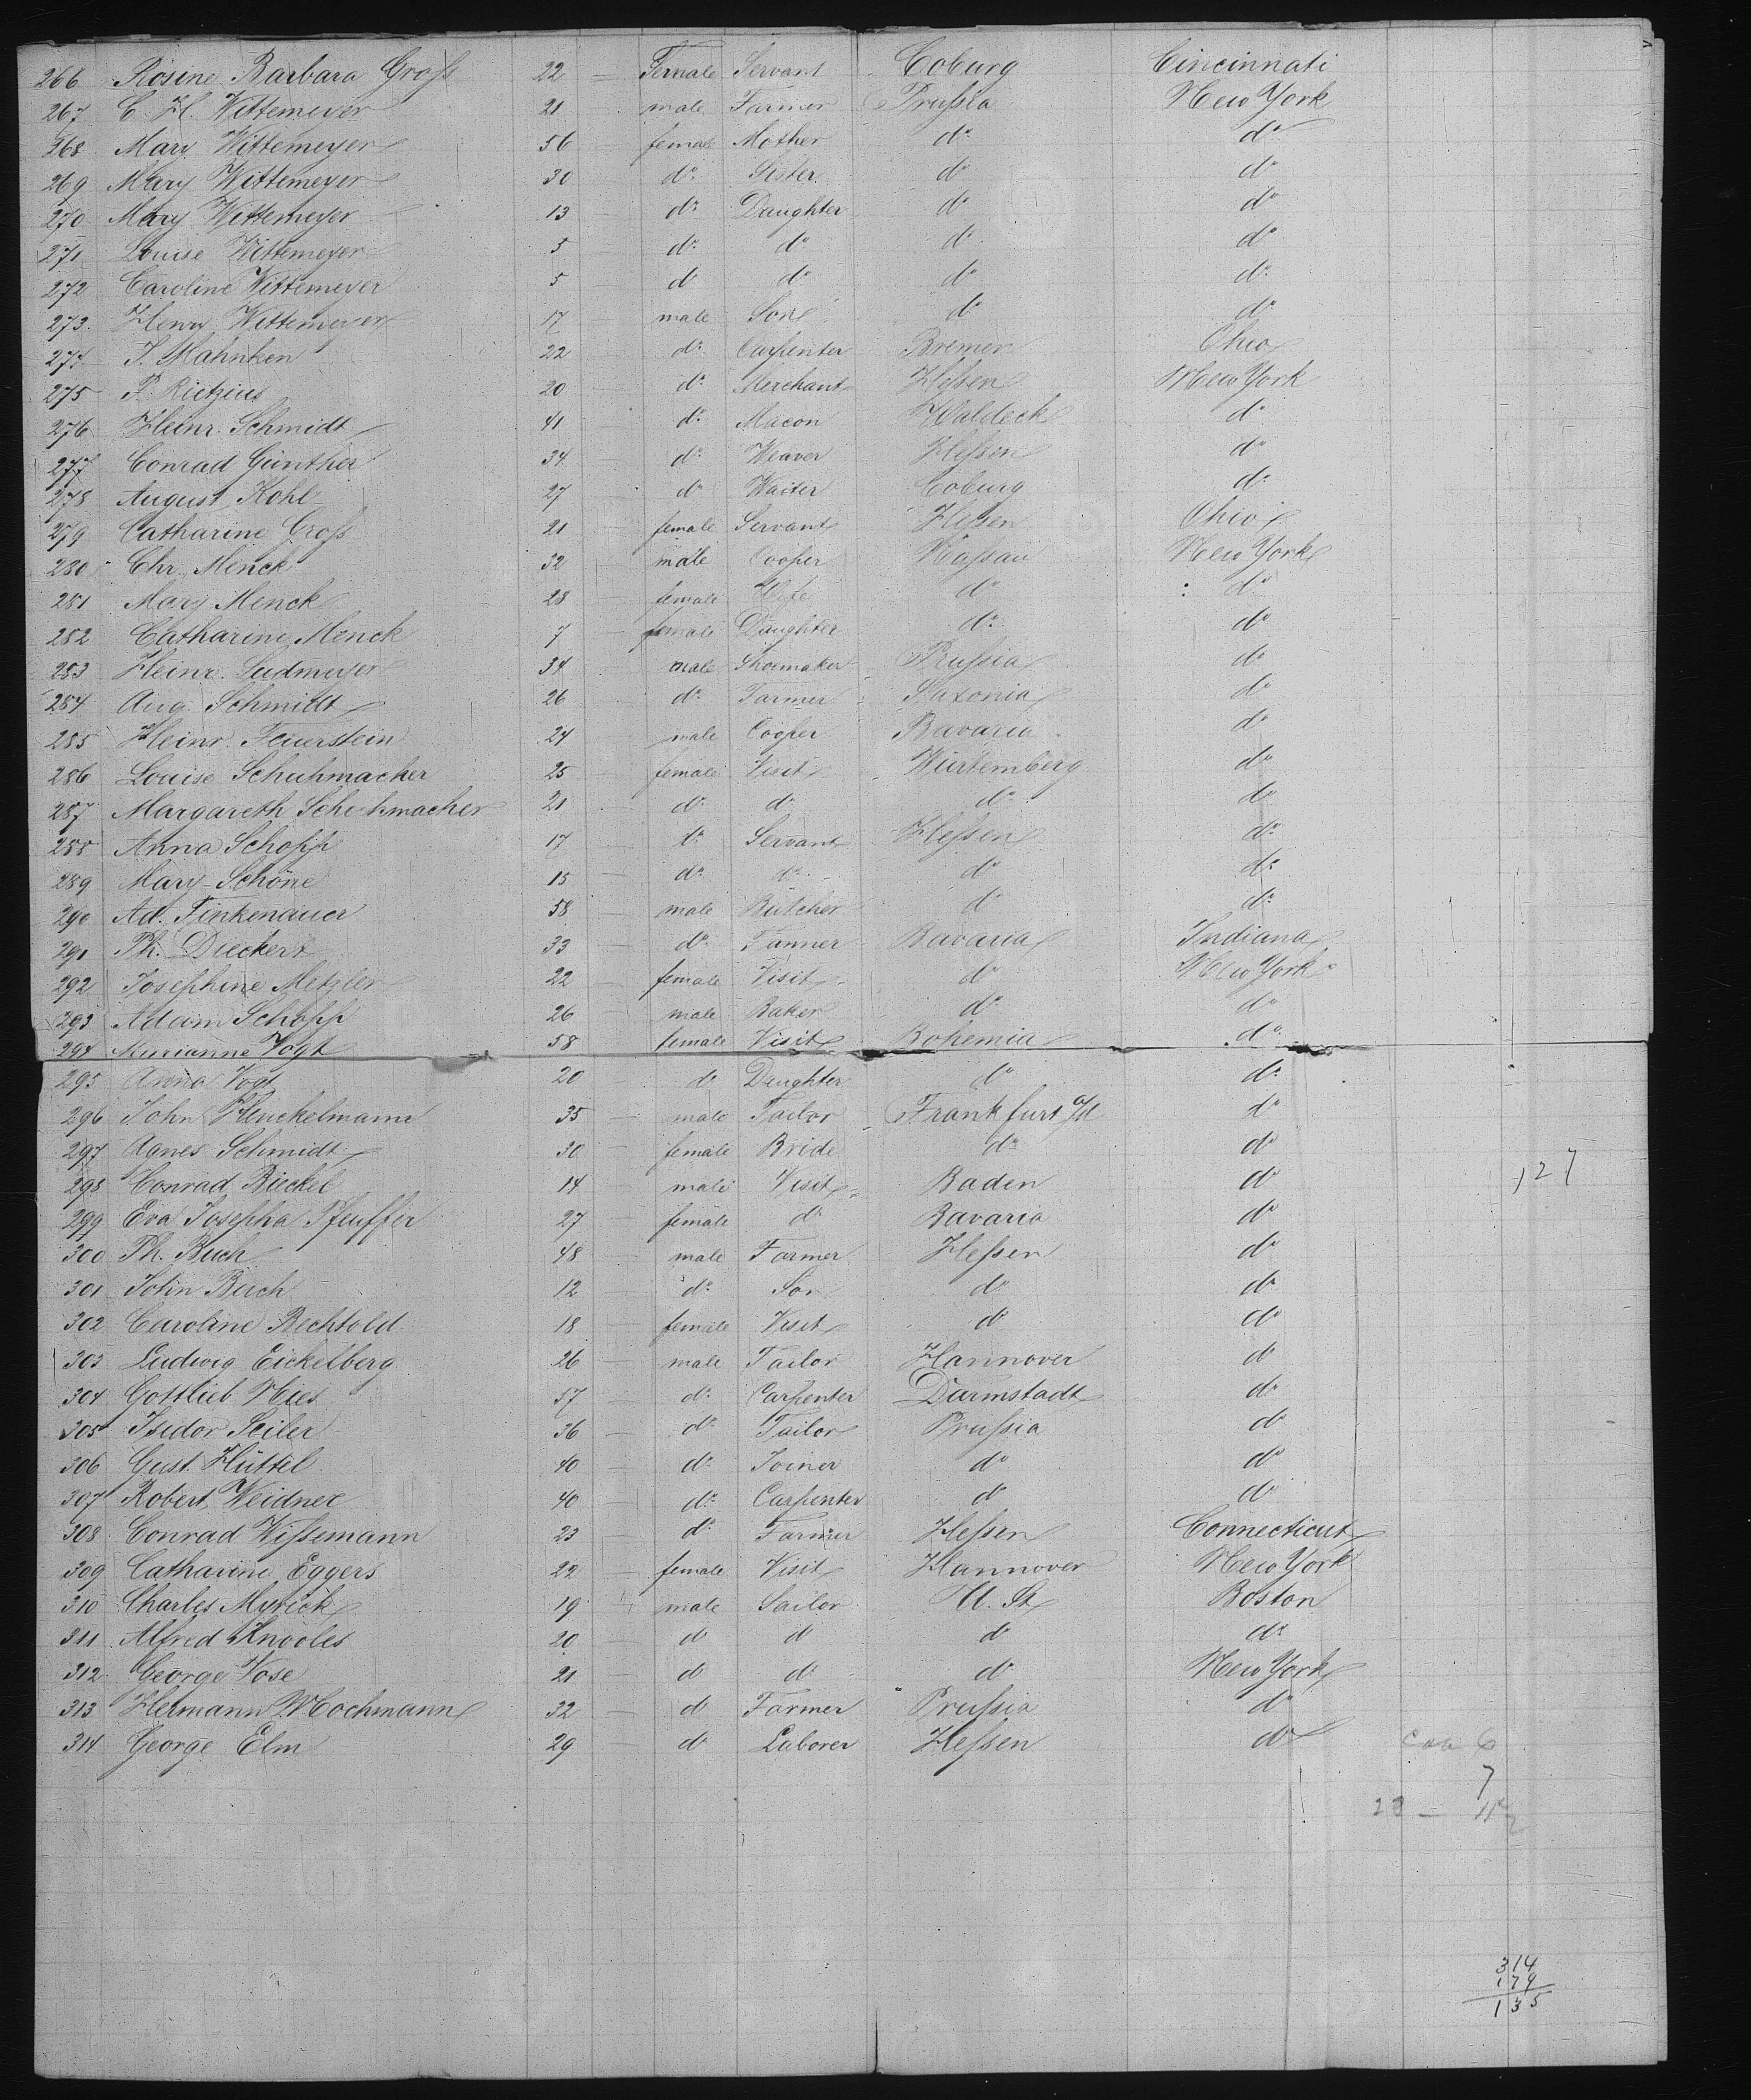 266 Rosine Barbara Groſs 22 — Female Servant Coburg Cincinnati
267 C. H. Wittemeyer 21 male Farmer Pruſsia New York
268 Mary Wittemeyer 56 female Mother do do
269 Mary Wittemeyer 30 do Sister do do
270 Mary Wittemeyer 13 — do Daughter do do
271 Louise Wittemeyer 5 do do do do
272 Caroline Wittemeyer 5 do do do do
273 Henry Wittemeyer 17 — male Son do do
274 J. Mahnken 22 do Carpenter Bremen Ohio
275 P. Rietzius 20 — do Merchant Heſsen New York
276 Heinr. Schmidt 41 do Macon Waldeck do
277 Conrad Günther 34 — do Weaver Heſsen do
278 August Kohl 27 do Waiter Coburg do
279 Catharine Groſs 21 — female Servant Heſsen Ohio
280 Chr. Menck 32 male Cooper Naſsau New York
281 Mary Menck 28 — female Wife do do
282 Catharine Menck 7 — female Daughter do do
283 Heinr. Sudmeyer 34 — male Shoemaker Pruſsia do
284 Aug. Schmidt 26 — do Farmer Saxonia do
285 Heinr. Feuerstein 24 male Cooper Bavaria do
286 Louise Schuhmacher 25 female Visit Würtemberg do
287 Margareth Schuhmacher 21 do do do do
288 Anna Schopp 17 do Servant Heſsen do
289 Mary Schöne 15 — do do do do
290 Ad. Finkenauer 58 — male Butcher do do
291 Ph. Dieckert 33 — do Tanner Bavaria Indiana
292 Josephine Metzler 22 — female Visit do New York
293 Adam Schopp 26 — male Baker do do
294 Marianne Vogt 58 female Visit Bohemia do
295 Anna Vogt 20 — do Daughter do do
296 John Henckelmann 35 — male Tailor Frankfurt a/M do
297 Agnes Schmidt 30 — female Bride do do
298 Conrad Bieckel 14 — male Visit Baden do
127
299 Eva Josepha Pfeuffer 27 — female do Bavaria do
300 Ph. Buch 48 — male Farmer Heſsen do
301 John Buch 12 — do Son do do
302 Caroline Bechtold 18 — female Visit do do
303 Ludwig Eickelberg 26 — male Tailor Hannover do
304 Gottlieb Nies 57 — do Carpenter Darmstadt do
305 Isidor Seiler 36 — do Tailor Pruſsia do
306 Gust. Hüttel 40 — do Joiner do do
307 Robert Weidner 40 — do Carpenter do do
308 Conrad Wiſsemann 23 — do Farmer Heſsen Connecticut
309 Catharine Eggers 22 — female Visit Hannover New York
310 Charles Myrick 19 male Sailor U. St. Boston
311 Alfred Knooles 20 — do do do do
312 George Vose 21 — do do do New York
313 Hermann Wochmann 32 — do Farmer Pruſsia do
314 George Elm 29 do Laborer Heſsen do
7
314
179
135